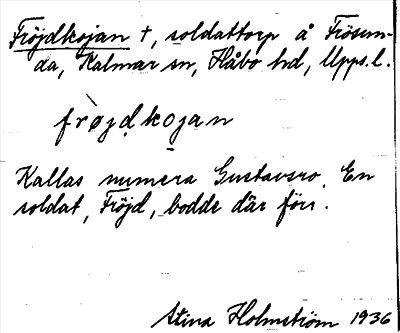 Fröjdkojan †, soldattorp å Frösun-
da, Kalmar sn, Håbo hd, Upps.l.
frøjdkojan
Kallas numera Gustavsro. En
soldat, Fröjd, bodde där förr.
Stina Holmström 1936